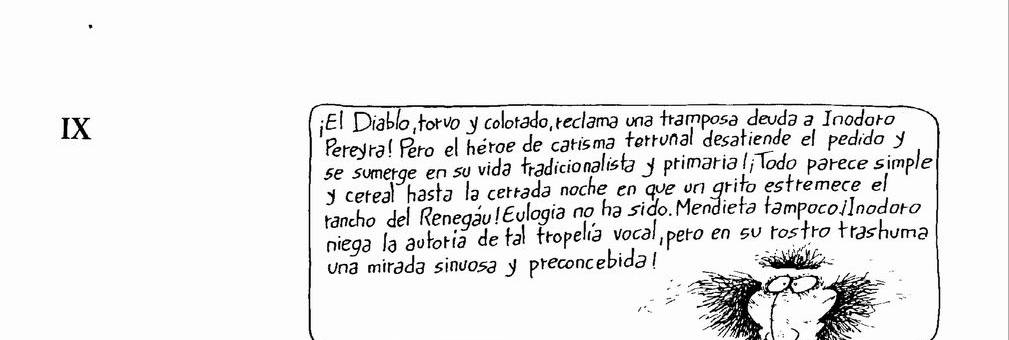 IX
¡El Diablo, torvo y colorado, reclama una tramposa deuda a Inodoro
Pereyra! Pero el héroe de carisma terruñal desatiende el pedido y
se sumerge en su vida tradicionalista y primaria! ¡Todo parece simple
y cereal hasta la cerrada noche en que un grito estremece el
rancho del Renegáu! Eulogia no ha sido. Mendieta tampoco. ¡Inodoro
niega la autoría de tal tropelía vocal, pero en su rostro trashuma
una mirada sinuosa y preconcebida!